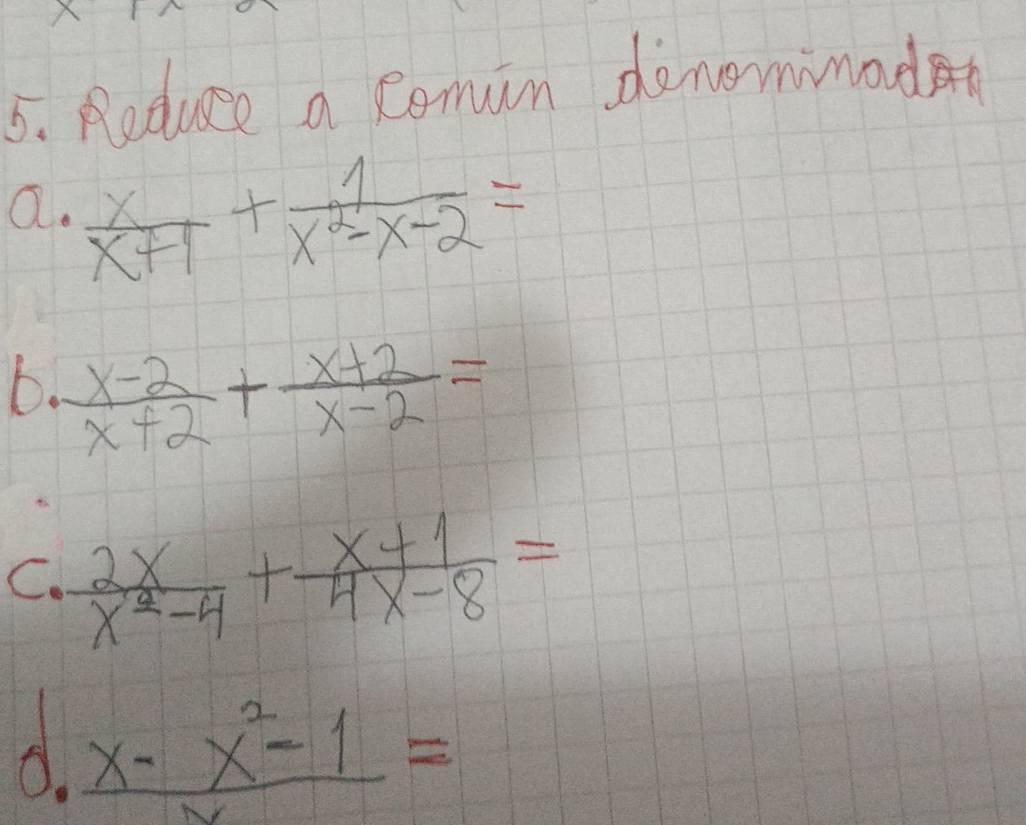 5. Reduce a común denominador
a. x/(x+1) + 1/(x²-x-2) =
b. (x-2)/(x+2) + (x+2)/(x-2) =
c. 2x/(x²-4) + (x+1)/(4x-8) =
d. (x- x²-1)/x =